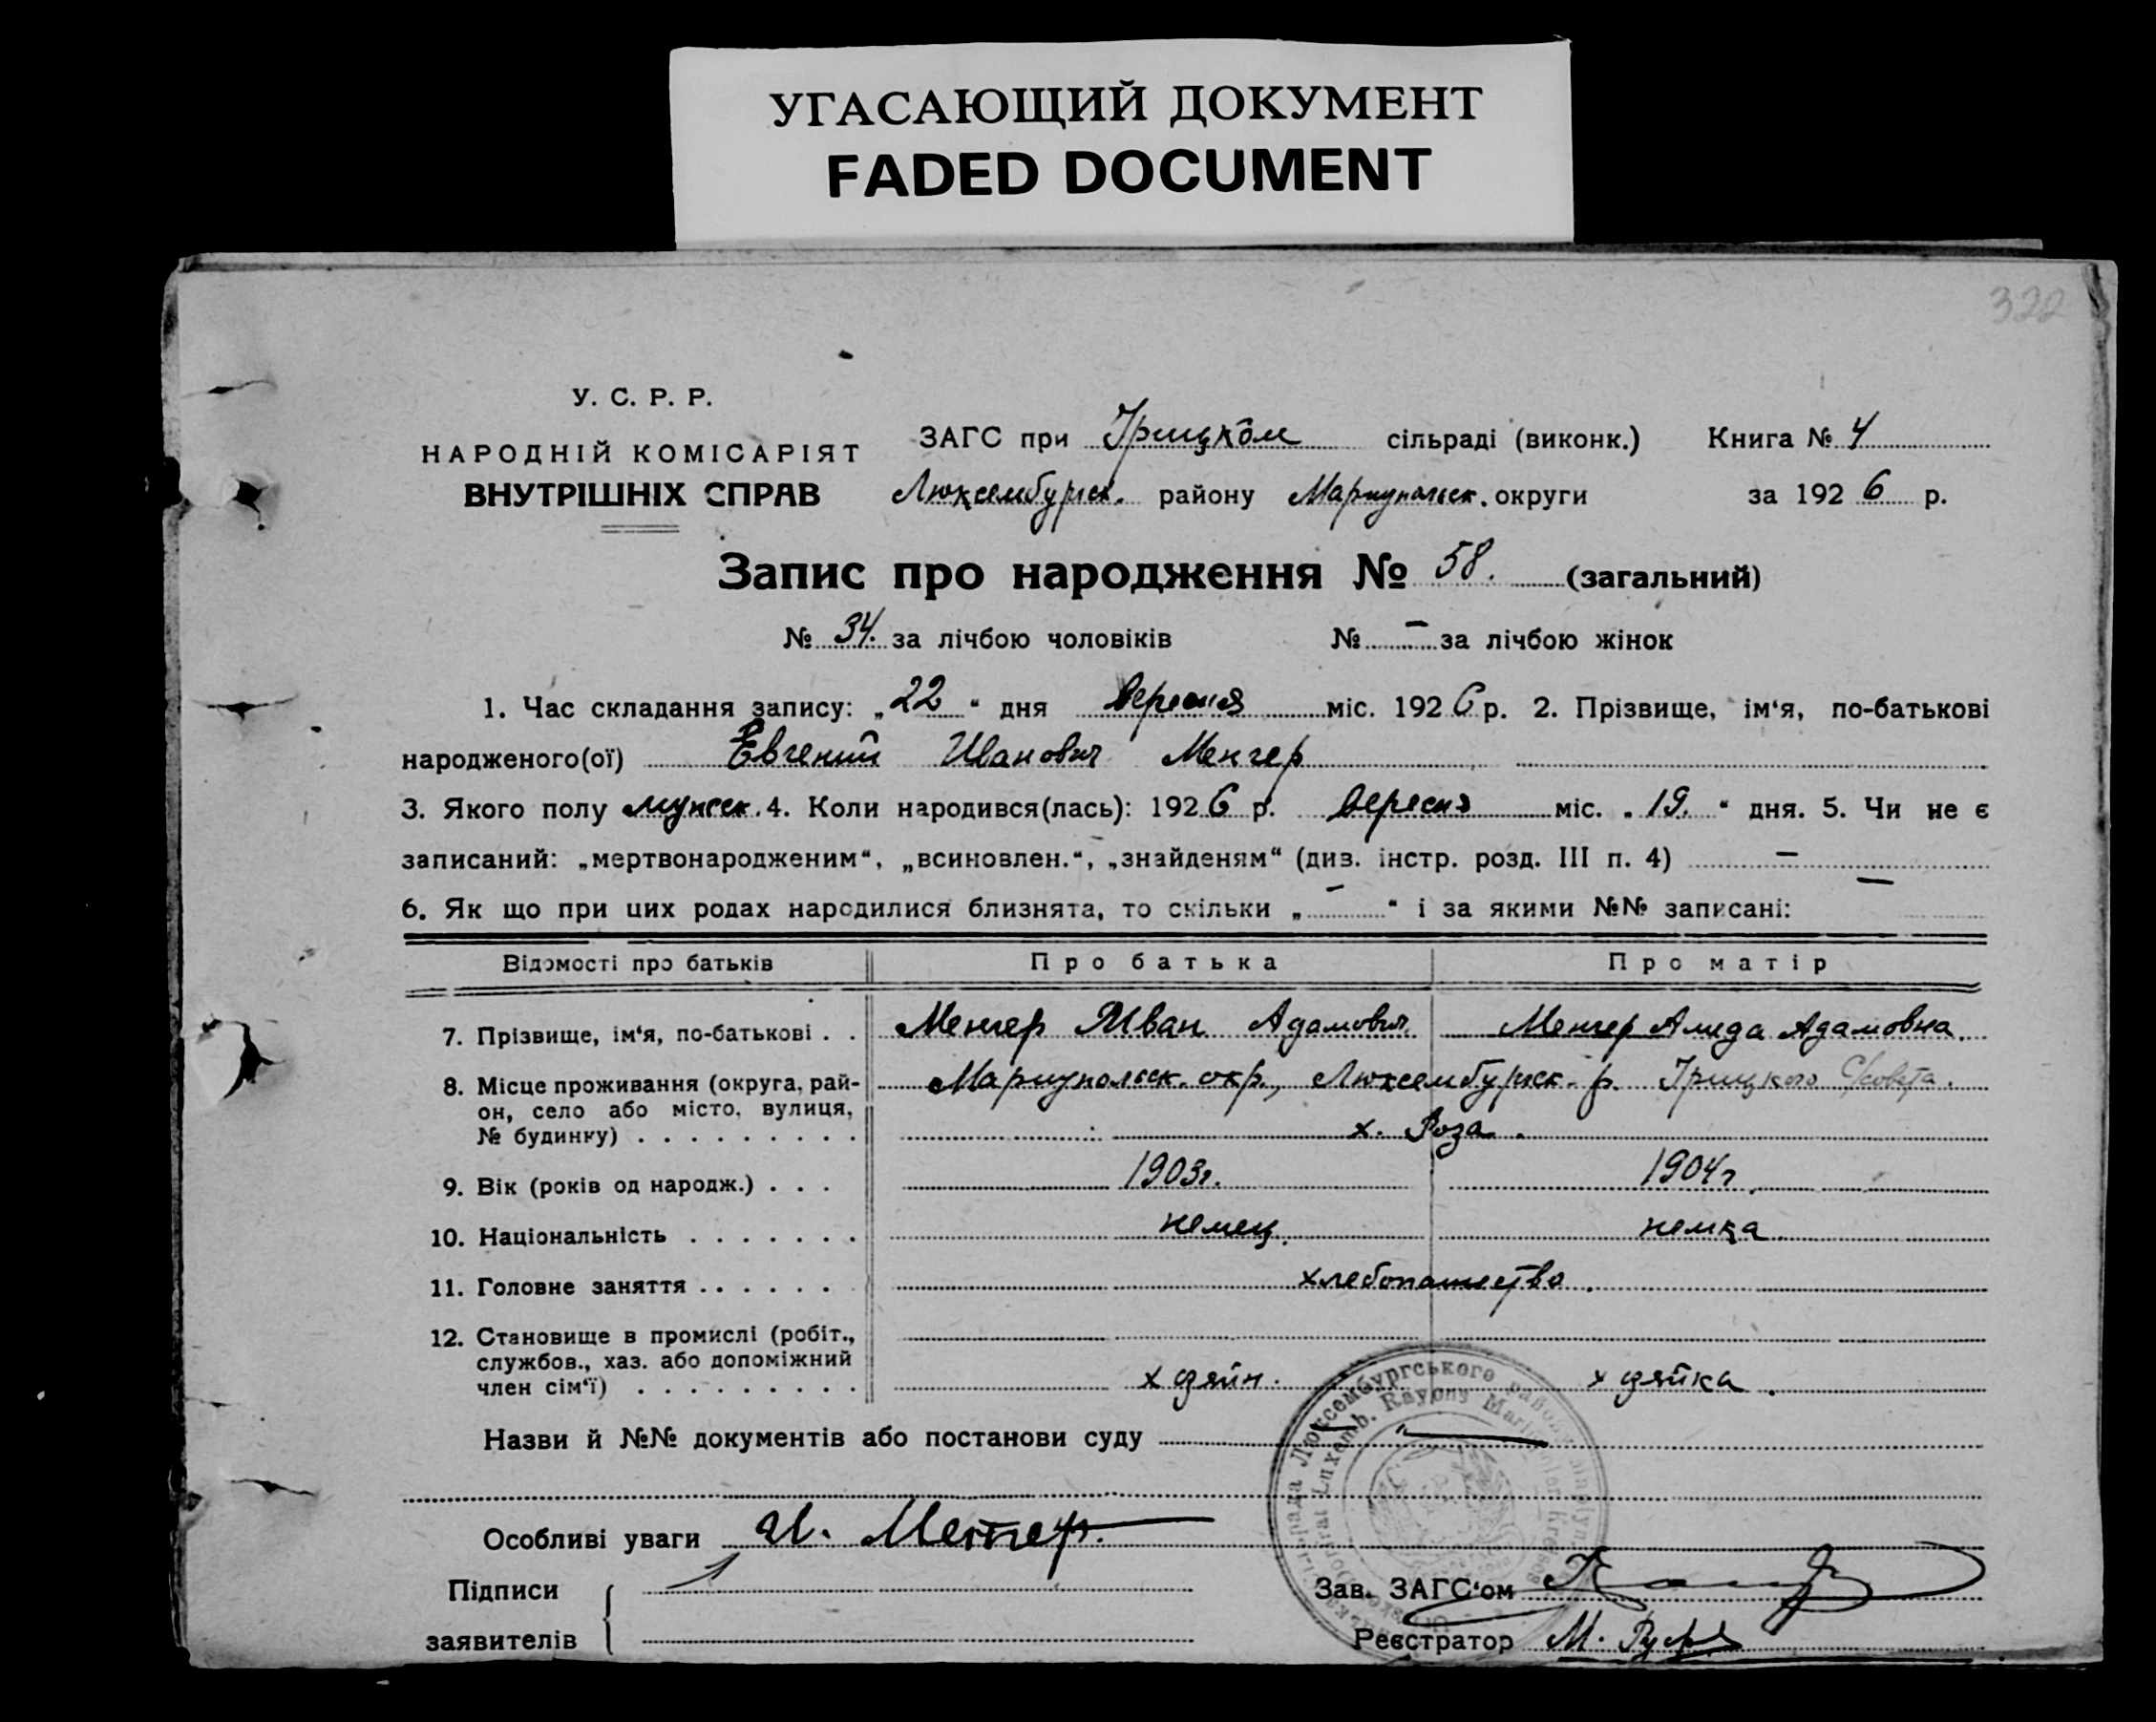 УГАСАЮЩИЙ ДОКУМЕНТ
FADED DOCUMENT
322
У. С. Р. Р.
НАРОДНІЙ КОМІСАРІЯТ
ВНУТРІШНІХ СПРАВ
ЗАГС при Грицком сільраді (виконк.) Книга № 4
Люксембургск. району Мариупольск. округи за 1926 р.
Запис про народження № 58. (загальний)
№ 34. за лічбою чоловіків № — за лічбою жінок
1. Час складання запису: „22“ дня вересня міс. 1926 р. 2. Прізвище, ім‘я, по-батькові
народженого(ої) Евгений Иванович Менгер
3. Якого полу мужск. 4. Коли народився(лась): 1926 р. вересня міс. „19.“ дня. 5. Чи не є
записаний: „мертвонародженим“, „всиновлен.“, „знайденям“ (див. інстр. розд. III п. 4) —
6. Як що при цих родах народилися близнята, то скільки „—“ і за якими №№ записані: —
Відомості про батьків Про батька Про матір
7. Прізвище, ім‘я, по-батькові . . Менгер Иван Адамович. Менгер Алида Адамовна.
8. Місце проживання (округа, рай- Мариупольск. окр., Люксембургск. р. Грицкого С/совета.
он, село або місто, вулиця,
№ будинку) . . . . . . . . . х. Роза.
9. Вік (років од народж.) . . . 1903г. 1904г.
10. Національність . . . . . . . немец. немка.
11. Головне заняття . . . . . . хлебопашество.
12. Становище в промислі (робіт.,
службов., хаз. або допоміжний
член сім‘ї) . . . . . . . . . х озяйн. х озяйка.
Назви й №№ документів або постанови суду —
Люксембургського району
Luxemb. Rayony
Особливі уваги И. Менгер.
Підписи
заявителів
Зав. ЗАГС‘ом
Реєстратор М.